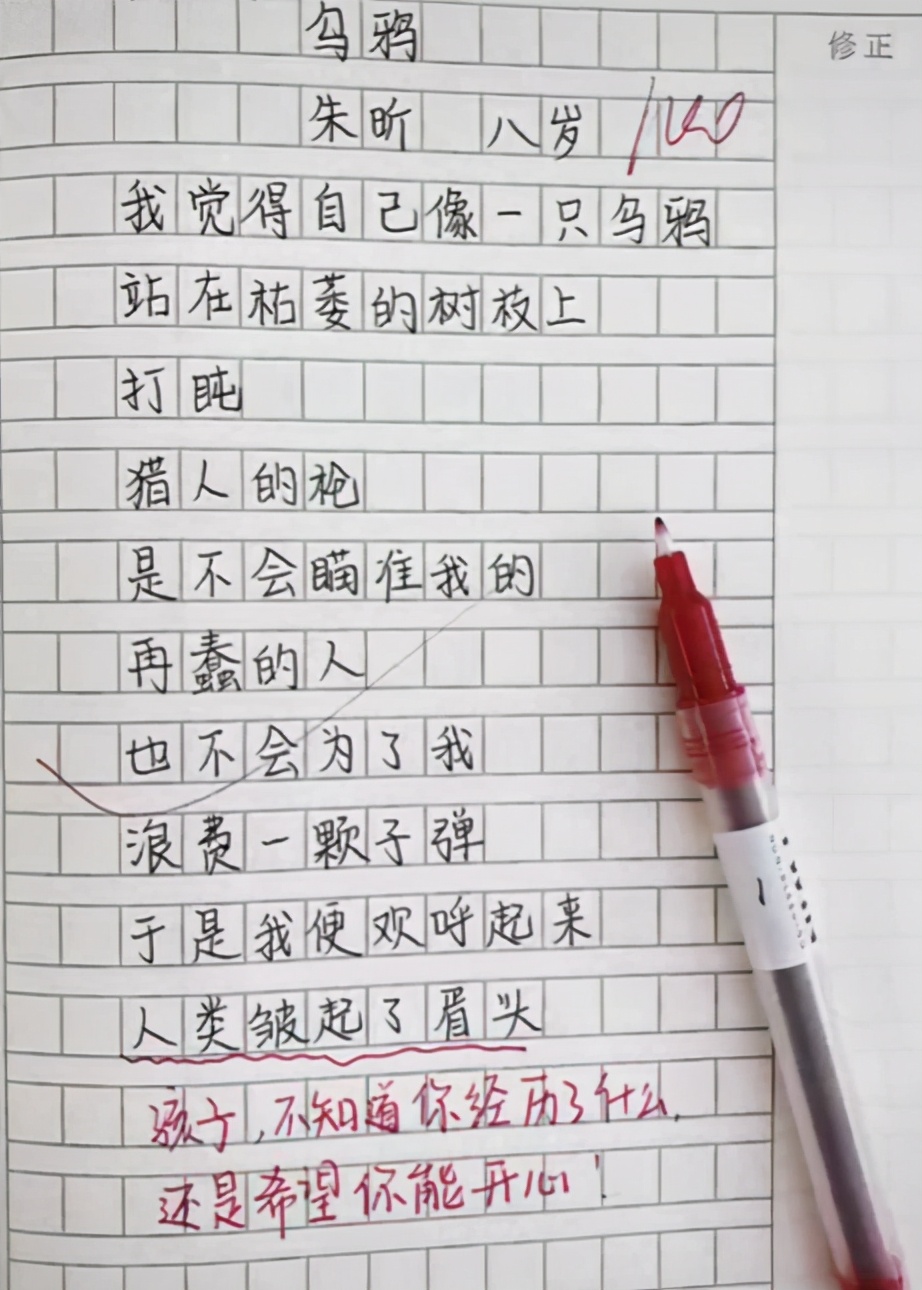 乌鸦
修正
朱昕 八岁 100
我觉得自己像一只乌鸦
站在枯萎的树枝上
打盹
猎人的枪
是不会瞄准我的
再蠢的人
也不会为了我
浪费一颗子弹
于是我便欢呼起来
人类皱起了眉头
孩子,不知道你经历了什么,
还是希望你能开心!